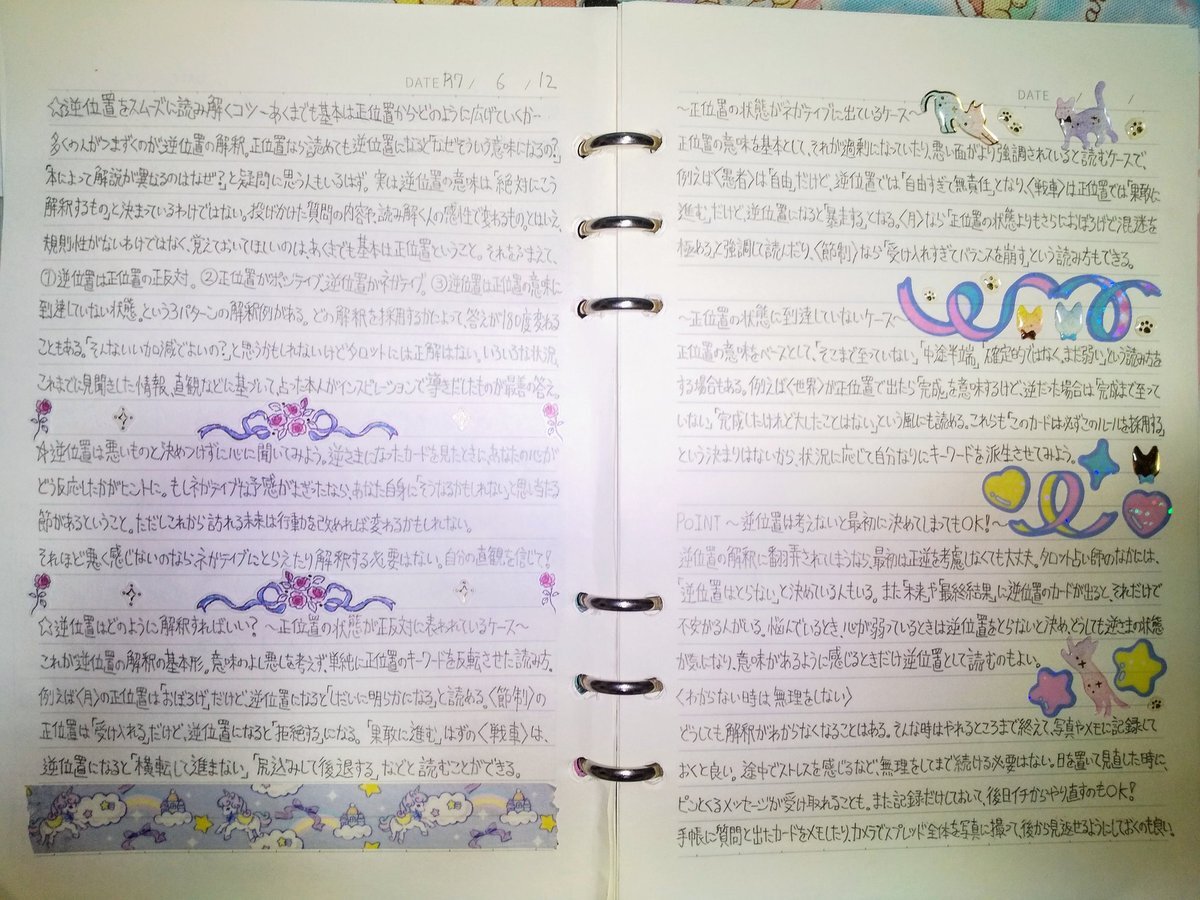 DATE R7 / 6 / 12
☆逆位置をスムーズに読み解くコツ～あくまでも基本は正位置からどのように広げていくか～
多くの人がつまずくのが逆位置の解釈。正位置なら読めても逆位置になると「なぜそういう意味になるの?」
「本によって解説が異なるのはなぜ?」と疑問に思う人もいるはず。実は逆位置の意味は「絶対にこう
解釈するもの」と決まっているわけではない。投げかけた質問の内容や、読み解く人の感性で変わるもの。とはいえ、
規則性がないわけではなく、覚えておいてほしいのは、あくまでも基本は正位置ということ。それをふまえて、
①逆位置は正位置の正反対。②正位置がポジティブ、逆位置がネガティブ。③逆位置は正位置の意味に
到達していない状態。という3パターンの解釈例がある。どの解釈を採用するかによって、答えが180度変わる
こともある。「そんないい加減でよいの?」と思うかもしれないけどタロットには正解はない。いろいろな状況、
これまでに見聞きした情報、直観などに基づいて、占った本人がインスピレーションで導きだしたものが最善の答え。
☆逆位置は悪いものと決めつけずに心に聞いてみよう。逆さまになったカードを見たときに、あなたの心が
どう反応したかがヒントに。もしネガティブな予感がよぎったなら、あなた自身に「そうなるかもしれない」と思い当たる
節があるということ。ただしこれから訪れる未来は行動を改めれば変わるかもしれない。
それほど悪く感じないのならネガティブにとらえたり解釈する必要はない。自分の直観を信じて!
☆逆位置はどのように解釈すればいい? ～正位置の状態が正反対に表われているケース～
これが逆位置の解釈の基本形。意味のよし悪しを考えず、単純に正位置のキーワードを反転させた読み方。
例えば〈月〉の正位置は「おぼろげ」だけど、逆位置になると「しだいに明らかになる」と読める。〈節制〉の
正位置は「受け入れる」だけど、逆位置になると「拒絶する」になる。「果敢に進む」はずの〈戦車〉は、
逆位置になると「横転して進まない」「尻込みして後退する」などと読むことができる。
DATE / /
～正位置の状態がネガティブに出ているケース～
正位置の意味を基本として、それが過剰になっていたり、悪い面がより強調されていると読むケースで、
例えば〈愚者〉は「自由」だけど、逆位置では「自由すぎて無責任」となり、〈戦車〉は正位置では「果敢に
進む」だけど、逆位置になると「暴走する」となる。〈月〉なら「正位置の状態よりもさらにおぼろげで混迷を
極める」と強調して読んだり、〈節制〉なら「受け入れすぎてバランスを崩す」という読み方もできる。
～正位置の状態に到達していないケース～
正位置の意味をベースとして、「そこまで至っていない」「中途半端」「確定的ではなく、まだ弱い」という読み方を
する場合もある。例えば〈世界〉が正位置で出たら「完成」を意味するけど、逆だった場合は「完成まで至って
いない」「完成したけれど大したことはない」という風にも読める。これらも「このカードは必ずこのルールを採用する」
という決まりはないから、状況に応じて自分なりにキーワードを派生させてみよう。
POINT ～逆位置は考えないと最初に決めてしまってもOK!～
逆位置の解釈に翻弄されてしまうなら、最初は正逆を考慮しなくても大丈夫。タロット占い師のなかには、
「逆位置はとらない」と決めている人もいる。また「未来」や「最終結果」に逆位置のカードが出ると、それだけで
不安がる人がいる。悩んでいるとき、心が弱っているときは逆位置をとらないと決め、どうしても逆さまの状態
が気になり、意味があるように感じるときだけ逆位置として読むのもよい。
〈わからない時は無理をしない〉
どうしても解釈がわからなくなることはある。そんな時はやれるところまで終えて、写真やメモに記録して
おくと良い。途中でストレスを感じるなど、無理をしてまで続ける必要はない。日を置いて見直した時に、
ピンとくるメッセージが受け取れることも。また記録だけしておいて、後日イチからやり直すのもOK!
手帳に質問と出たカードをメモしたり、カメラでスプレッド全体を写真に撮って、後から見返せるようにしておくのも良い。